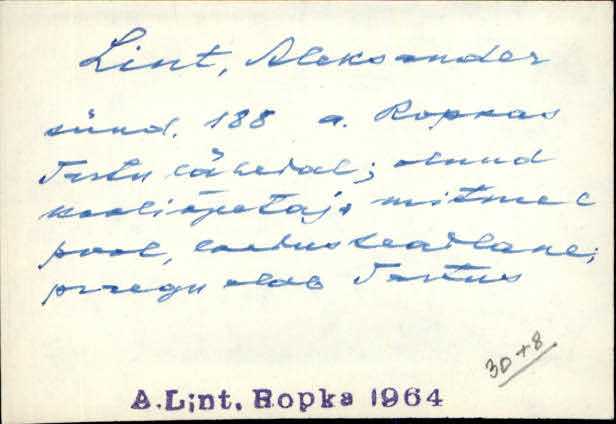 Lint, Aleksander
sünd. 188 a. Ropkas
Tartu lähedal; olnud
kooliõpetaja mitmel
pool, loodusteadlane;
praegu elab Tartus
30+8
A.Lint. Ropka 1964